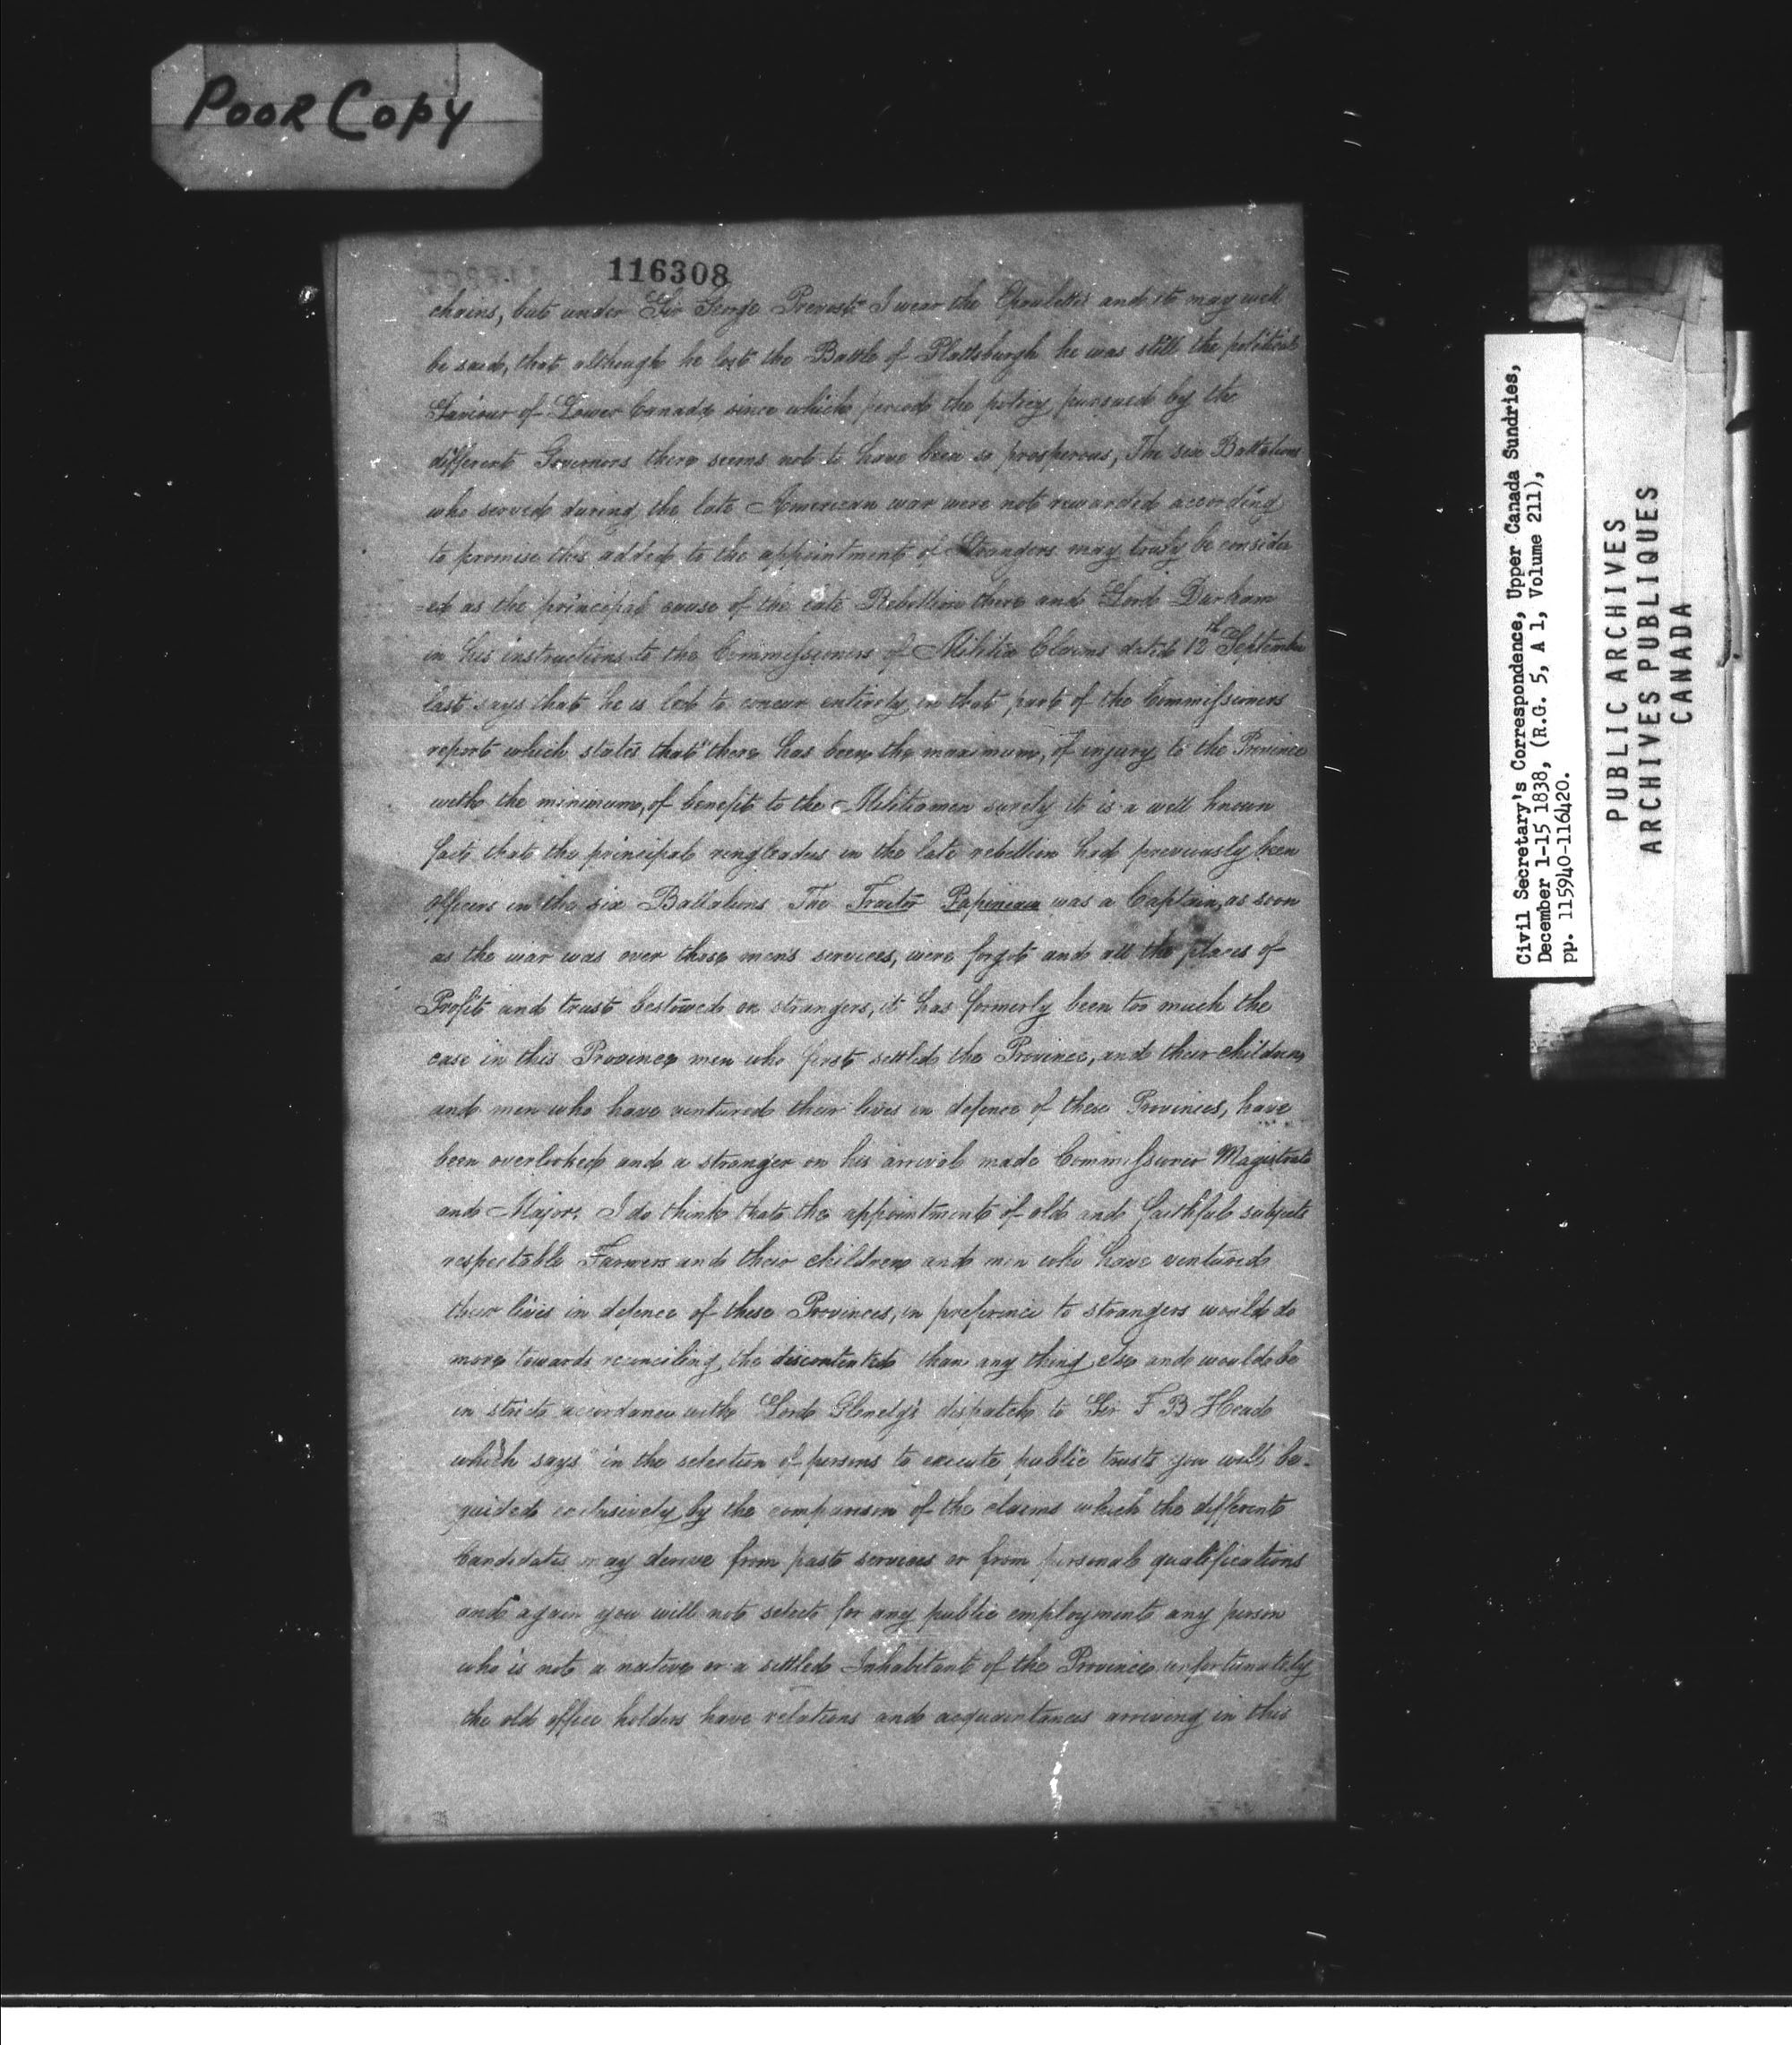 POOR COPY
116308
chains, but under Sir George Prevost" I wear the Epaulettes and it may well
be said, that although he lost the Battle of Plattsburgh he was still the political
Saviour of Lower Canada since which period the policy pursued by the
different Governors there seems not to have been so prosperous, The six Battalions
who served during the late American war were not rewarded according
to promise this added to the appointment of Strangers may truly be consider
=ed as the principal cause of the late Rebellion there and Lord Durham
in his instructions to the Commissioners of Militia Claims dated 12th September
last says that he is led to concur entirely in that part of the Commissioners
report which states that "there has been the maximum, of injury to the Province
with the minimum, of benefit to the Militiamen surely it is a well known
fact that the principal ringleaders in the late rebellion had previously been
officers in the six Battalions The Traitor Papineau was a Captain, as soon
as the war was over these men's services, were forgot and all the places of
Profit and trust bestowed on strangers, it has formerly been too much the
case in this Province men who first settled the Province, and their children
and men who have ventured their lives in defence of these Provinces, have
been overlooked and a stranger on his arrival made Commissioner Magistrate
and Major. I do think that the appointment of old and faithful subjects
respectable Farmers and their children and men who have ventured
their lives in defence of these Provinces, in preference to strangers would do
more towards reconciling the discontented than any thing else and would be
in strict accordance with Lord Glenelg's dispatch to Sir F B Head
which says "in the selection of persons to execute public trusts you will be
guided exclusively by the comparison of the claims which the different
Candidates may derive from past services or from personal qualifications
and again you will not select for any public employment any person
who is not a native or a settled Inhabitant of the Province unfortunately
the old office holders have relations and acquaintances arriving in this
Civil Secretary's Correspondence, Upper Canada Sundries,
December 1-15 1838, (R.G. 5, A 1, Volume 211),
pp. 115940-116420.
PUBLIC ARCHIVES
ARCHIVES PUBLIQUES
CANADA